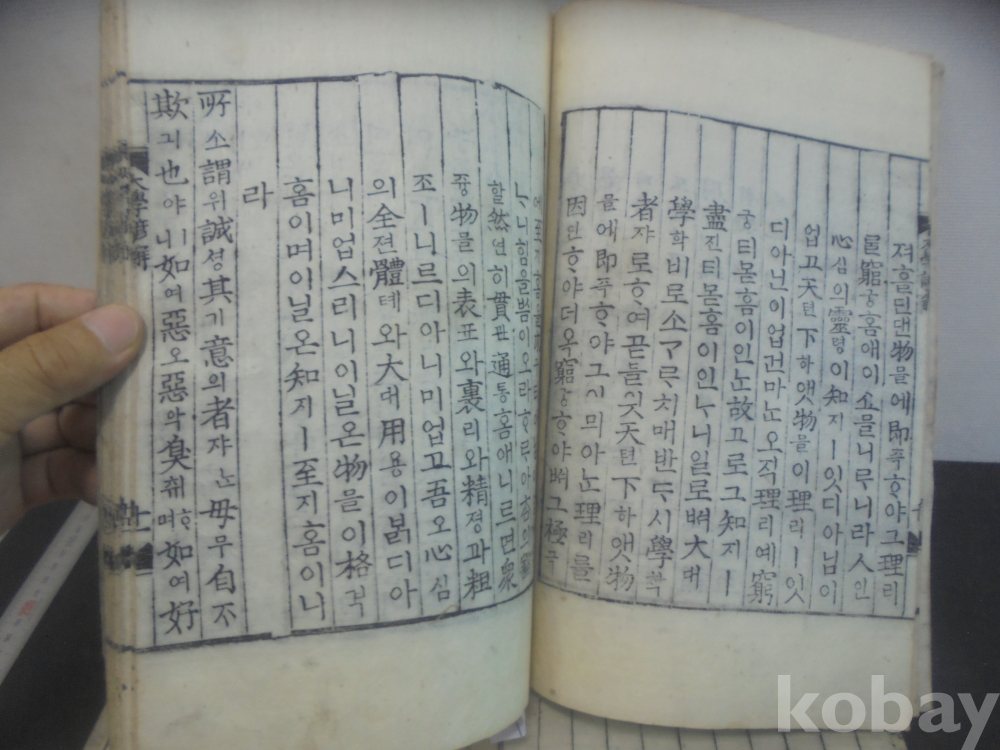 져홀딘댄物믈에即즉ᄒᆞ야그理리
ᄅᆞᆯ窮궁홈애이쇼믈니ᄅᆞ니라人인
心심의靈령이知지ㅣ잇디아님이
업고天텬下하앳物믈이理리ㅣ잇
디아닌이업건마ᄂᆞᆫ오직理리예窮
궁티몯홈이인ᄂᆞᆫ故고로그知지ㅣ
盡진티몯홈이인ᄂᆞ니일로ᄡᅥ大대
學학비로소ᄀᆞᄅᆞ치매반ᄃᆞ시學학
者쟈로ᄒᆞ여곧믈읫天텬下하앳物
믈에即즉ᄒᆞ야그이믜아ᄂᆞᆫ理리를
因인ᄒᆞ야더옥窮궁ᄒᆞ야ᄡᅥ그極극
에至지홈을
ᄂᆞ니힘을ᄡᅳᆷ이오라
할然연히貫관通통홈애니르면衆
즁物믈의表표와裏리와精졍과粗
조ㅣ니르디아니미업고吾오心심
의全젼體톄와大대用용이ᄇᆞᆰ디아
니미업스리니이닐온物믈이格격
홈이며이닐온知지ㅣ至지홈이니
라
所소謂위誠셩其기意의者쟈ᄂᆞᆫ毋무自ᄌᆞ
欺긔也야ㅣ니如여惡오惡악臭취ᄒᆞ며如여好
大學諺解
kobay